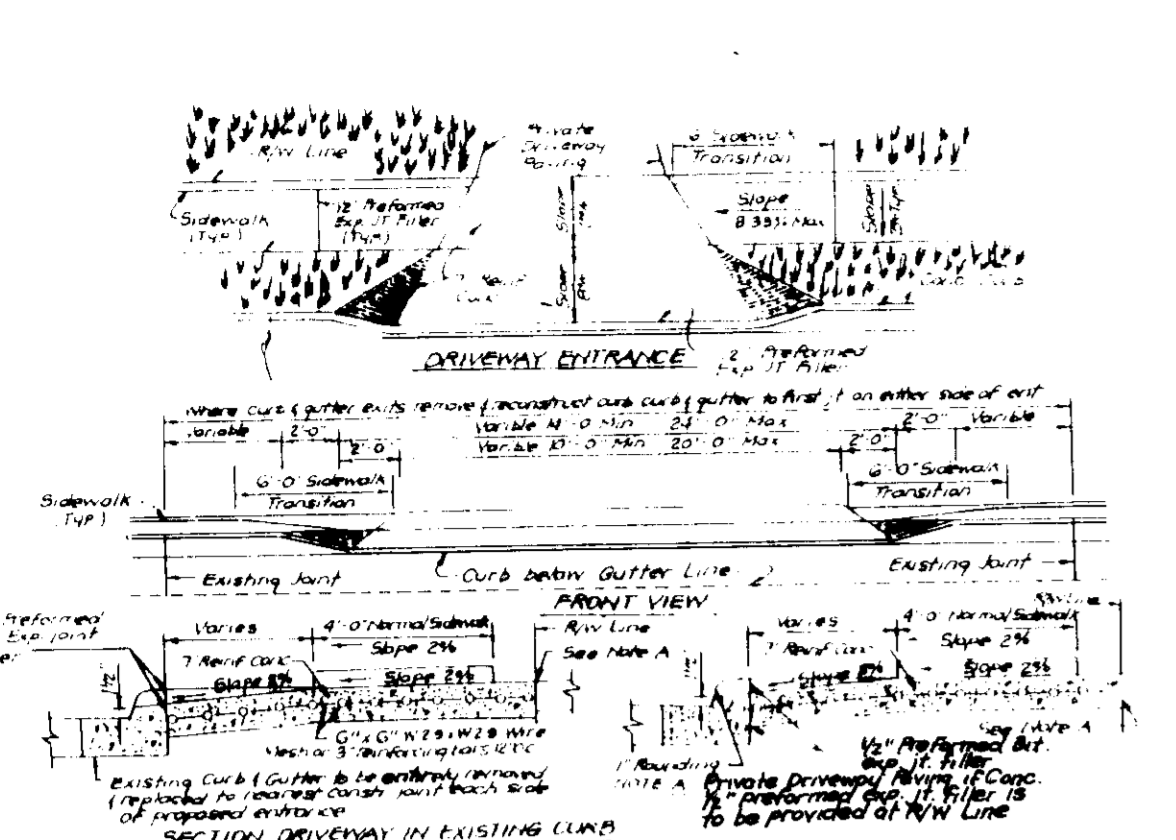 Private
Driveway
Paving
6' Sidewalk
Transition
R/W Line
Sidewalk
(Typ.)
1/2" Preformed
Exp. JT Filler
(Typ.)
Slope
Slope
8.33% Max
Slope
Slope
DRIVEWAY ENTRANCE
Preformed
Exp. JT Filler
Where curb & gutter exits remove & reconstruct curb curb & gutter to first jt on either side of ent
Variable 2'-0" Varible 14'-0 Min 24'-0" Max 2'-0" Variable
2'-0 Varible 10'-0 Min 20'-0" Max 2'-0"
6'-0" Sidewalk
Transition
6'-0" Sidewalk
Transition
Sidewalk
(Typ.)
Existing Joint
Curb below Gutter Line
Existing Joint
FRONT VIEW
Preformed
Exp. joint
Varies 4'-0" Normal Sidewalk
Slope 2%
R/W Line
See Note A
7" Reinf Conc
Slope
Slope 2%
6" x 6" W2.9 x W2.9 Wire
Mesh or 3 reinforcing bars 12" OC
Existing Curb & Gutter to be entirely removed
& replaced to nearest const. joint each side
of proposed entrance
SECTION DRIVEWAY IN EXISTING CURB
R/W Line
Varies 4'-0" Normal Sidewalk
Slope 2%
7" Reinf Conc
Slope 2%
See Note A
1" Rounding
NOTE A
1/2" Preformed Bit.
exp. jt. filler
Private Driveway Paving if Conc.
1/2" preformed exp. jt. filler is
to be provided at R/W Line